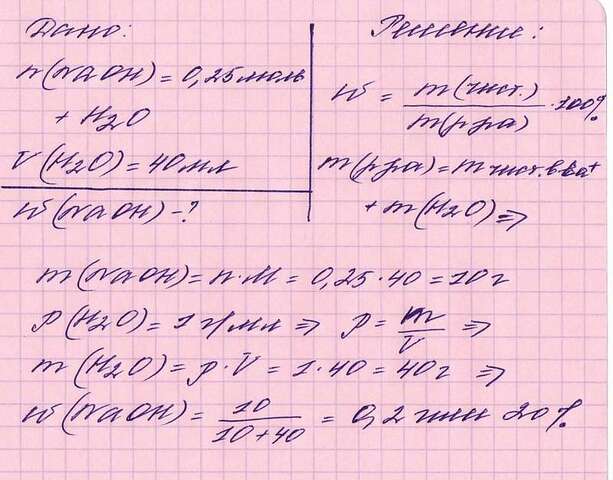 Дано:
n(NaOH) = 0,25 моль
+ H2O
V(H2O) = 40 мл
w(NaOH) - ?
Решение:
w = m(чист.) / m(р-ра) · 100%
m(р-ра) = m чист. в-ва +
+ m(H2O) ⇒
m(NaOH) = n · M = 0,25 · 40 = 10 г
ρ(H2O) = 1 г/мл ⇒ ρ = m / V ⇒
m(H2O) = ρ · V = 1 · 40 = 40 г ⇒
w(NaOH) = 10 / 10 + 40 = 0,2 или 20%